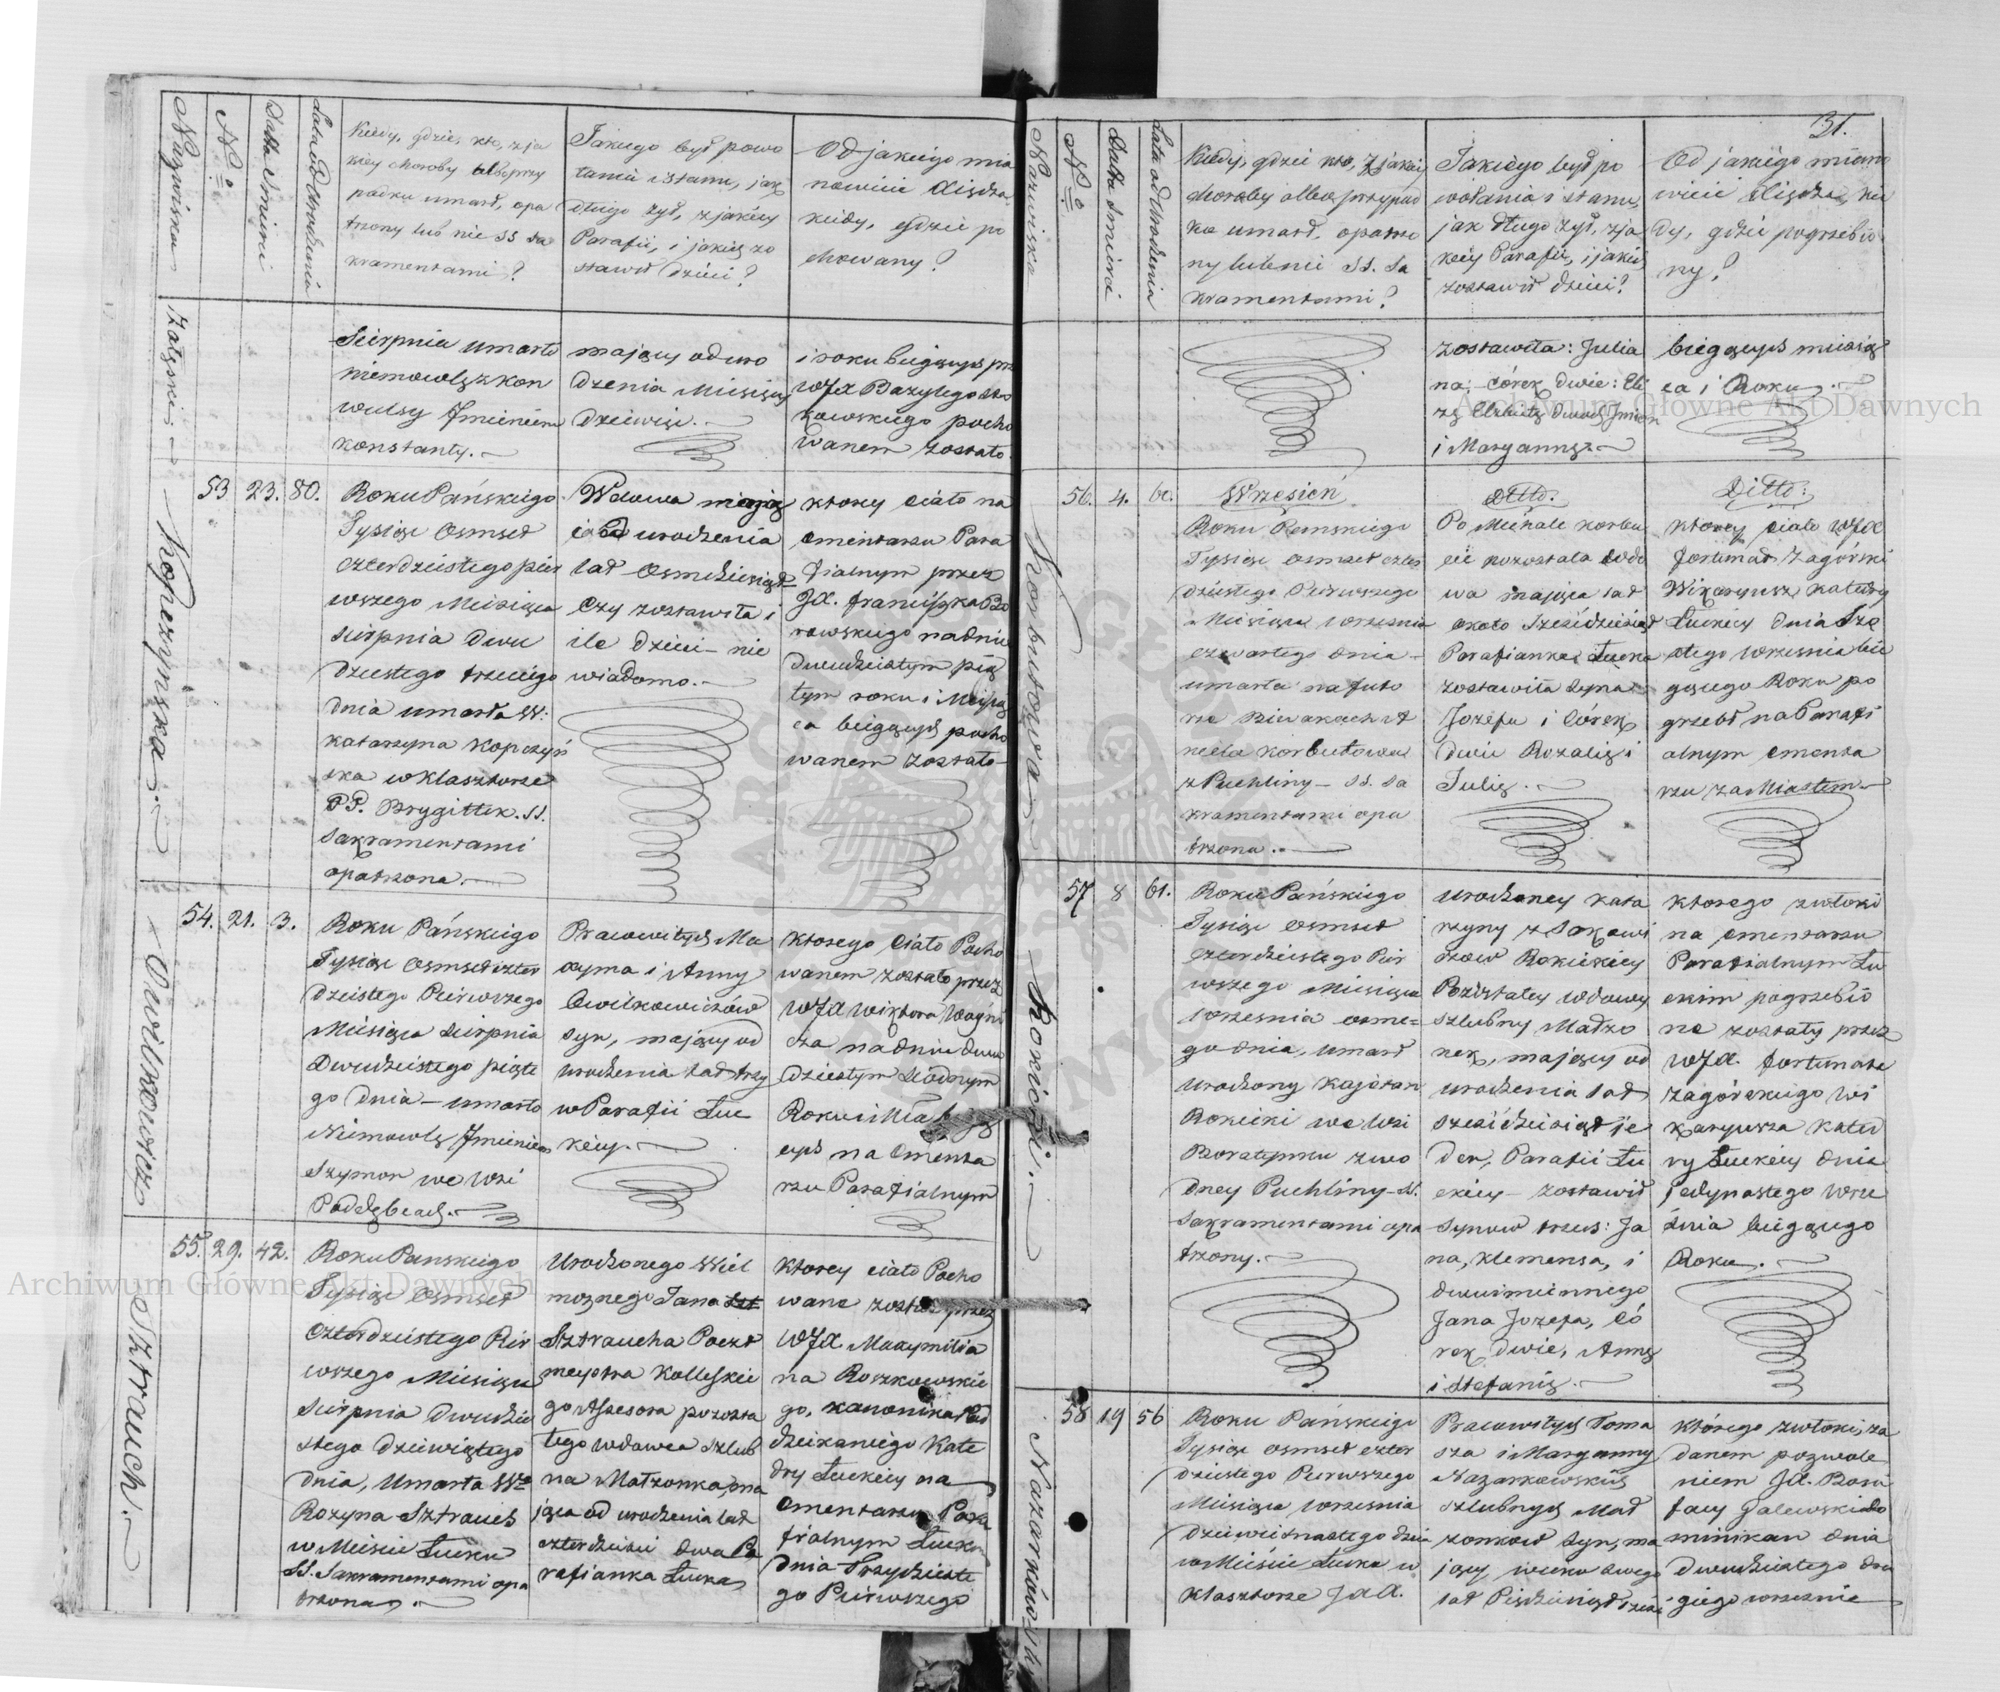 Nazwiska
No
Datta Smierci
Lata od Urodzenia
Kiedy, gdzie, kto, z ja
kiey choroby albo przy
padku umarł, opa
trzony lub nie SS Sa
kramentami?
Jakiego był powo
łania i stanu, jak
długo żył, z jakiey
Parafii, i jakie zo
stawił dzieci?
Od jakiego mia
nowicie Xiędza
kiedy, gdzie po
chowany?
Sierpnia umarło
niemowlę z kon
wulsyi Jmieniem
Konstanty.
mający od uro
dzenia Miesięcy
dziewięć.
i roku bieżących prz
WJX Bazylego
kowskiego pocho
wanem zostało.
Kopczyńska.
53
23.
80.
Roku Pańskiego
Tysiąc Osmset
czterdziestego pier
wszego Miesiąca
Sierpnia dwu
dziestego trzeciego
dnia umarła W:
Katarzyna Kopczyń
ska w Klasztorze
PP. Brygittek. SS.
Sakramentami
opatrzona.
Wdowa mają
ca od urodzenia
lat Osmdziesiąt
czy zostawiła i
ile dzieci nie
wiadomo.
ktorey ciało na
cmentarzu Para
fialnym przez
JX. Franciszka Bo
rowskiego na dniu
dwudziestym pią
tym roku i Miesią
ca bieżących pocho
wanem zostało
Cwilkowicz
54.
21.
3.
Roku Pańskiego
Tysiąc Osmset czter
dziestego Pierwszego
Miesiąca Sierpnia
Dwudziestego piąte
go dnia umarło
Niemowle Jmieniem
Szymon we wsi
Poddębcach.
Pracowitych Ma
xyma i Anny
Cwilkowiczów
syn, mający od
urodzenia lat trzy
w Parafii Łuc
kiey.
Ktorego Ciało Pocho
wanem zostało przez
WJX Wiktora Wagni
cza na dniu dwu
dziestym siodmym
Roku i Mca bieżą
cych na Cmenta
rzu Parafialnym
Sztrauch.
55.
29.
42.
Roku Panskiego
Tysiąc Osmset
Czterdziestego Pier
wszego Miesiąca
Sierpnia Dwudzie
stego dziewiątego
dnia, Umarła Wa
Rozyna Sztrauch
w Mieście Łucku
SS. Sakramentami opa
trzona.
Urodzonego Wiel
możnego Jana
Sztraucha Poczt
meystra Kolleskie
go Assesora pozosta
łego wdowca szlub
na Małzonka, ma
jąca od urodzenia lat
czterdzieści dwa Pa
rafianka Łucka
Ktorey ciało Pocho
wane zostało przez
WJX Maxymilia
na Roszkowskie
go, kanonika
dziekaniego Kate
dry Łuckiey na
Cmentarzu Para
fialnym Łuckim
dnia Trzydzieste
go Pierwszego
31.
Nazwiska
No
Datta Smierci
Lata od Urodzenia
Kiedy, gdzie kto, z jakiej
choroby albo przypad
ku umarł, opatrzo
ny lub nie SS. Sa
kramentami?
Jakiego był po
wołania i stanu,
jak długo żył, z ja
kiey Parafii, i jakie
zostawił dzieci?
Od jakiego miano
wicie Xiędza, kie
dy, gdzie pogrzebio
ny?
zostawiła: Julia
na, córek dwie: Eli
zę Elżbietę dwoch Jmion
i Maryannę.
bieżących miesią
ca i Roku.
Korbutowa
56.
4.
60.
Wrzesień
Ditto.
Ditto:
Roku Panskiego
Tysiąc osmset czter
dziestego Pierwszego
Miesiąca września
czwartego dnia
umarła na futo
rze Biwakach A
niela Korbutowa
z Puchliny SS. Sa
kramentami opa
trzona.
Po Michale Korbu
cie pozostała wdo
wa mająca lat
około sześćdziesiąt
Parafianka Łucka
zostawiła syna
Jozefa i córek
dwie Rozalię i
Julię.
Ktorey ciało WJX
Fortunat Zagórski
Wikaryusz Katedry
Łuckiey dnia Szo
stego września bie
żącego Roku po
grzebł na Parafi
alnym cmenta
rzu za Miastem
Rokicki.
57
8
61.
Roku Pańskiego
Tysiąc osmset
czterdziestego Pier
wszego Miesiąca
września osme=
go dnia, umarł
urodzony Kajetan
Rokicki we wsi
Boratynku z wo
dney Puchliny SS.
Sakramentami opa
trzony.
Urodzoney Kata
rzyny z Sakowi
czów Rokickiey
Pozostałey wdowy
szlubny Małżo
nek, mający od
urodzenia lat
sześćdziesiąt je
den, Parafii Łu
ckiey zostawił
synów trzech: Ja
na, Klemensa, i
dwuimiennego
Jana Jozefa, Có
rek dwie, Annę
i Stefanię.
ktorego zwłoki
na cmentarzu
Parafialnym Łu
ckim pogrzebio
ne zostały przez
WJX. Fortunata
Zagórskiego Wi
karyusza Kated
ry Łuckiey dnia
jedynastego Wrze
śnia bieżącego
Roku.
58
19
56
Roku Pańskiego
Tysiąc osmset czter
dziestego Pierwszego
Miesiąca września
dziewietnastego dnia
w Mieście Łucku w
Klasztorze
Pracowitych Toma
sza i Maryanny
Nazarkowskich
szlubnych Mał
żonków syn, ma
jący wieku swego
lat Pięćdziesiąt sześć
Którego zwłoki, za
danem pozwole
niem JX. Boni
facy Galewski do
minikan dnia
Dwudziestego dru
giego września
Archiwum Główne Akt Dawnych
Archiwum Główne Akt Dawnych